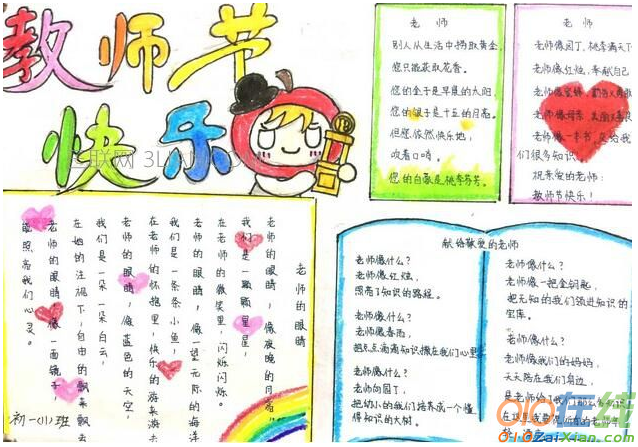 教师节
快乐
老师
别人从生活中捞取黄金,
您只能获取花香。
您的金子是早晨的太阳,
您的银子是十五的月亮。
但您依然快乐地,
吹着口哨。
您的白发是桃李芬芳。
老师
老师像园丁,桃李满天下
老师像红烛,奉献自己
老师像蜜蜂
老师像
老师像一本书
们很多知识。
祝亲爱的老师:
教师节快乐!
老师的眼睛
老师的眼睛,像夜晚的月亮,
我们是一颗颗星星,
在老师的微笑里,闪烁闪烁。
老师的眼睛,像一望无际的海洋
我们是一条条小鱼,
在老师的怀抱里,快乐的游来游去
老师的眼睛,像蓝色的天空,
我们是一朵一朵白云,
在她的注视下,自由的飘来飘去
老师的眼睛,像一面镜子,
照亮我们心灵。
初一(1)班
献给敬爱的老师
老师像什么?
老师像红烛,
照亮了知识的路程。
老师像什么?
老师像春雨,
把点点滴滴知识撒在我们心里
老师像什么?
老师向园丁,
把幼小的我们培养成一个懂
得知识的大树。
老师像什么?
老师像一把金钥匙,
把无知的我们领进知识的
宝库。
老师像什么?
老师像我们的妈妈,
天天陪在我们身边,
是老师给了我们
在这里我要
3LIAN
010在线
010ZaiXian.com